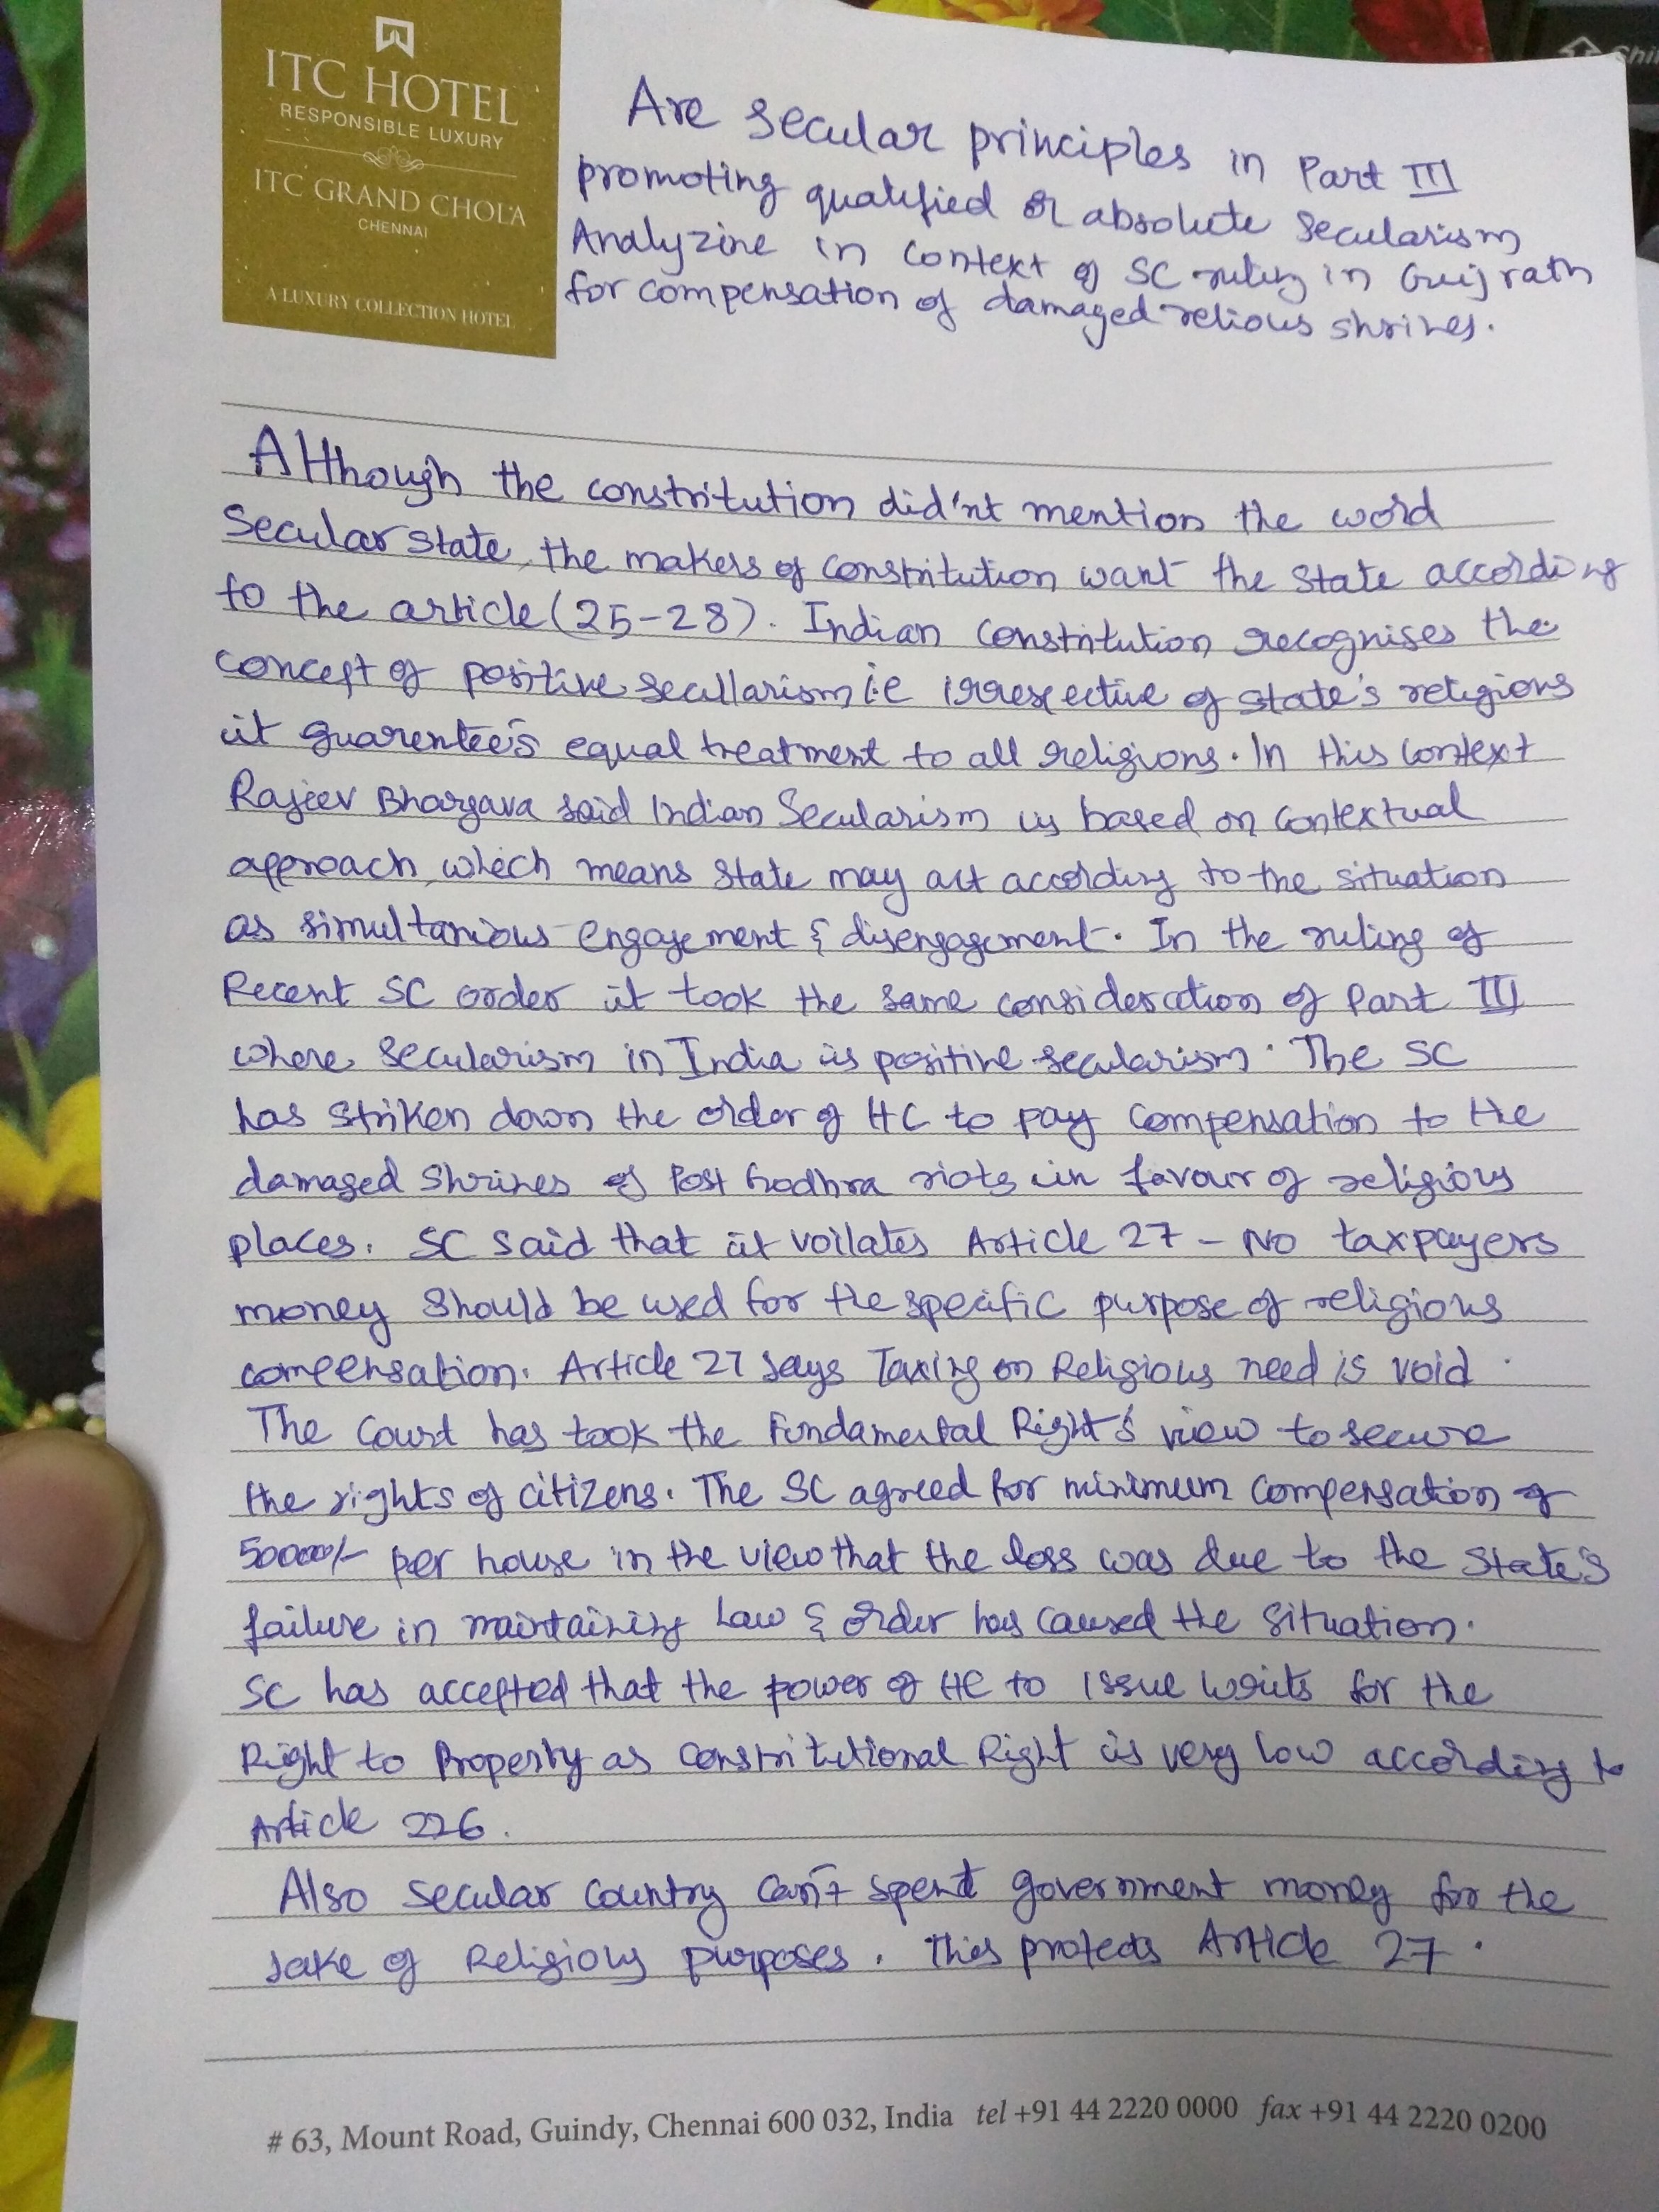 ITC HOTEL
RESPONSIBLE LUXURY
ITC GRAND CHOLA
CHENNAI
A LUXURY COLLECTION HOTEL
Shi
Are secular principles in Part III
promoting qualified or absolute secularism
Analyzine in context of SC ruling in Gujrath
for compensation of damaged relious shrines.
Although the constritution did'nt mention the word
Secular state, the makers of constritution want the state according
to the article (25-28). Indian Constritution recognises the
concept of positive secullarism i.e irrespective of state's religions
it guarentee's equal treatment to all religions. In this context
Rajeev Bhargava said Indian Secularism is based on contextual
approach, which means state may act according to the situation
as simultanious engagement & disengagement. In the ruling of
Recent SC order it took the same consideration of Part III
where secularism in India is positive secularism. The SC
has striken down the order of HC to pay compensation to the
damaged shrines of Post Godhra riots in favour of religious
places. SC said that it voilates Article 27 - No taxpayers
money should be used for the specific purpose of religious
compensation. Article 27 says Taxing on Religious need is void.
The Court has took the Fundamental Right's view to secure
the rights of citizens. The SC agreed for minimum compensation of
50000/- per house in the view that the loss was due to the State's
failure in maintaining Law & order has caused the situation.
SC has accepted that the power of HC to issue writs for the
Right to Property as Constritutional Right is very low according to
Article 226.
Also secular country can't spend government money for the
sake of Religious purposes. This protects Article 27.
# 63, Mount Road, Guindy, Chennai 600 032, India tel +91 44 2220 0000 fax +91 44 2220 0200